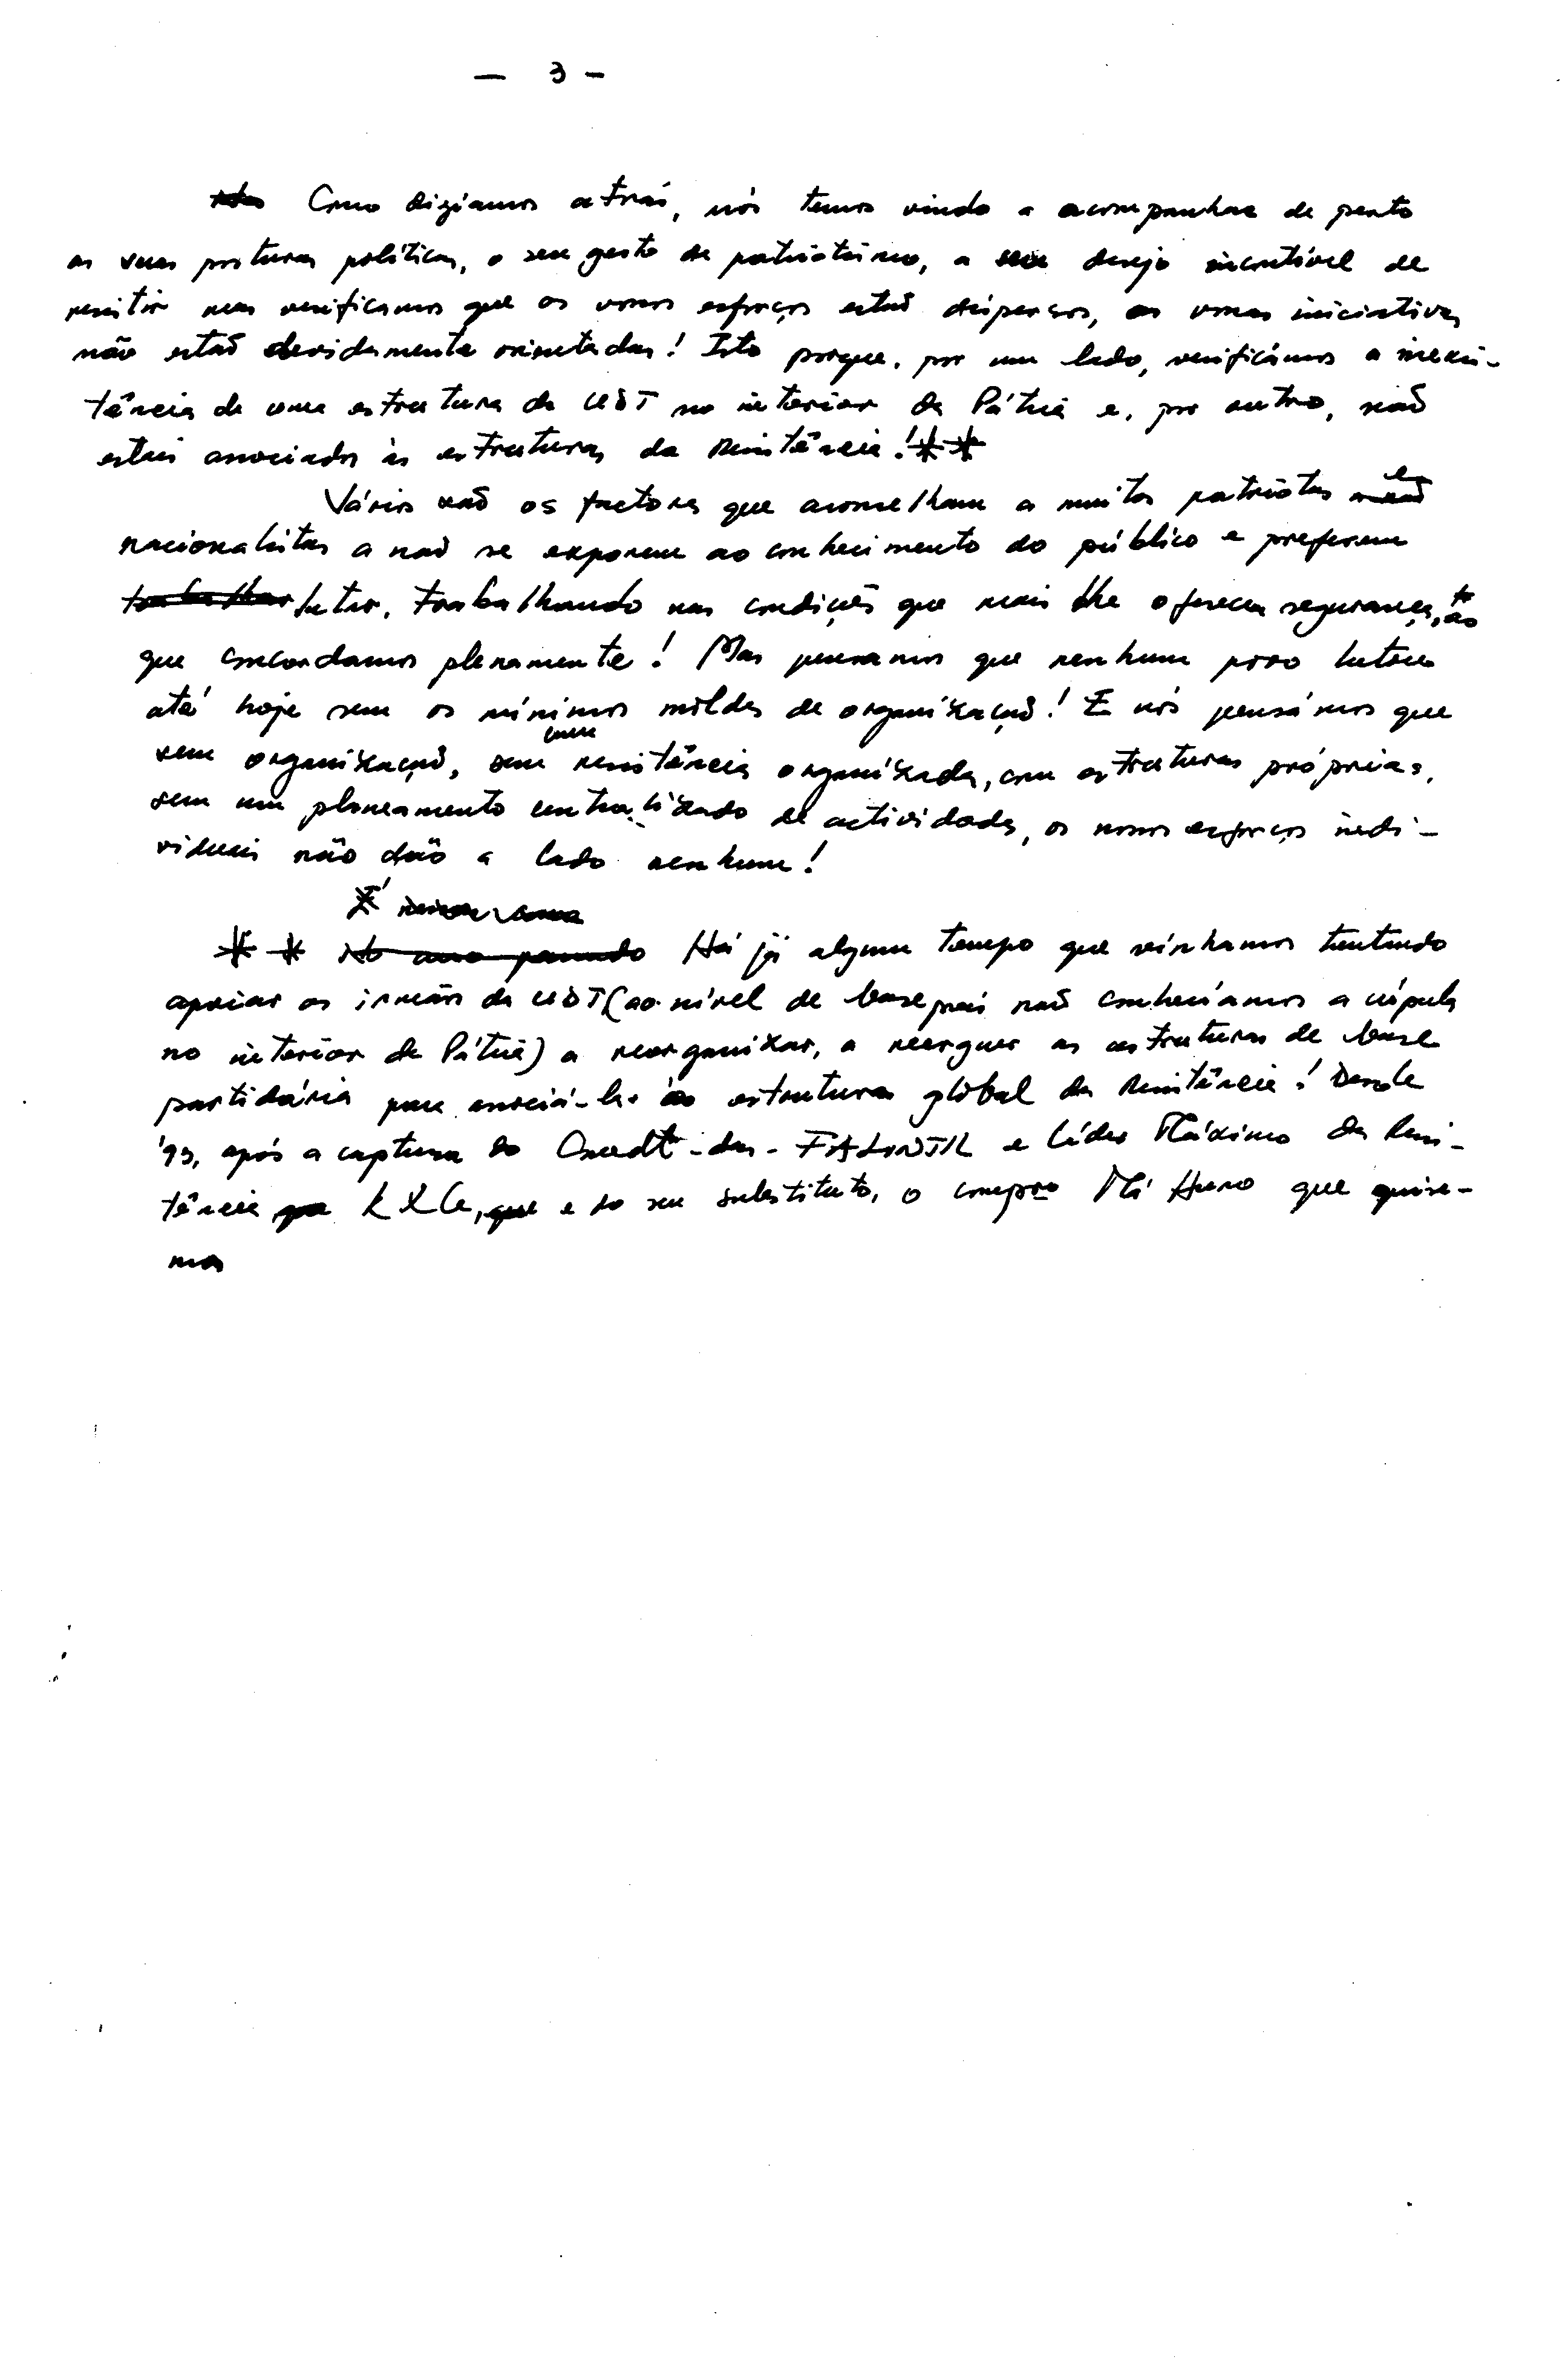 — 3 -
Como dizíamos atrás, nós temos vindo a acompanhar de perto
as suas posturas políticas, o seu gesto de patriotismo, o seu desejo incontível de
resistir mas verificamos que os vossos esforços estão dispersos, as vossas iniciativas
não estão devidamente orientadas! Isto porque, por um lado, verificámos a inexis-
tência de uma estrutura da UDT no interior da Pátria e, por outro, não
estais associados às estruturas da Resistência! * *
Vários são os factores que aconselham a muitos patriotas e
nacionalistas a não se exporem ao conhecimento do público e preferem
trabalhar lutar, trabalhando nas condições que mais lhe oferecem segurança,
que concordamos plenamente! Mas pensamos que nenhum povo lutou
até hoje sem os mínimos moldes de organização! E nós pensámos que
sem organização, sem uma resistência organizada, com estruturas próprias,
sem um planeamento centralizado de actividades, os nossos esforços indi-
viduais não dão a lado nenhum!
É
* * No ano passado Há já algum tempo que vínhamos tentando
apoiar os irmãos da UDT (ao nível de base pois não conhecíamos a cúpula
no interior da Pátria) a reorganizar, a reerguer as estruturas de base
partidária para associá-las à estrutura global da Resistência! Desde
'93, após a captura do Cmdt-das-FALINTIL e Líder Máximo da Resis-
tência K X G, e do seu substituto, o compro Má Huno que quise-
mos